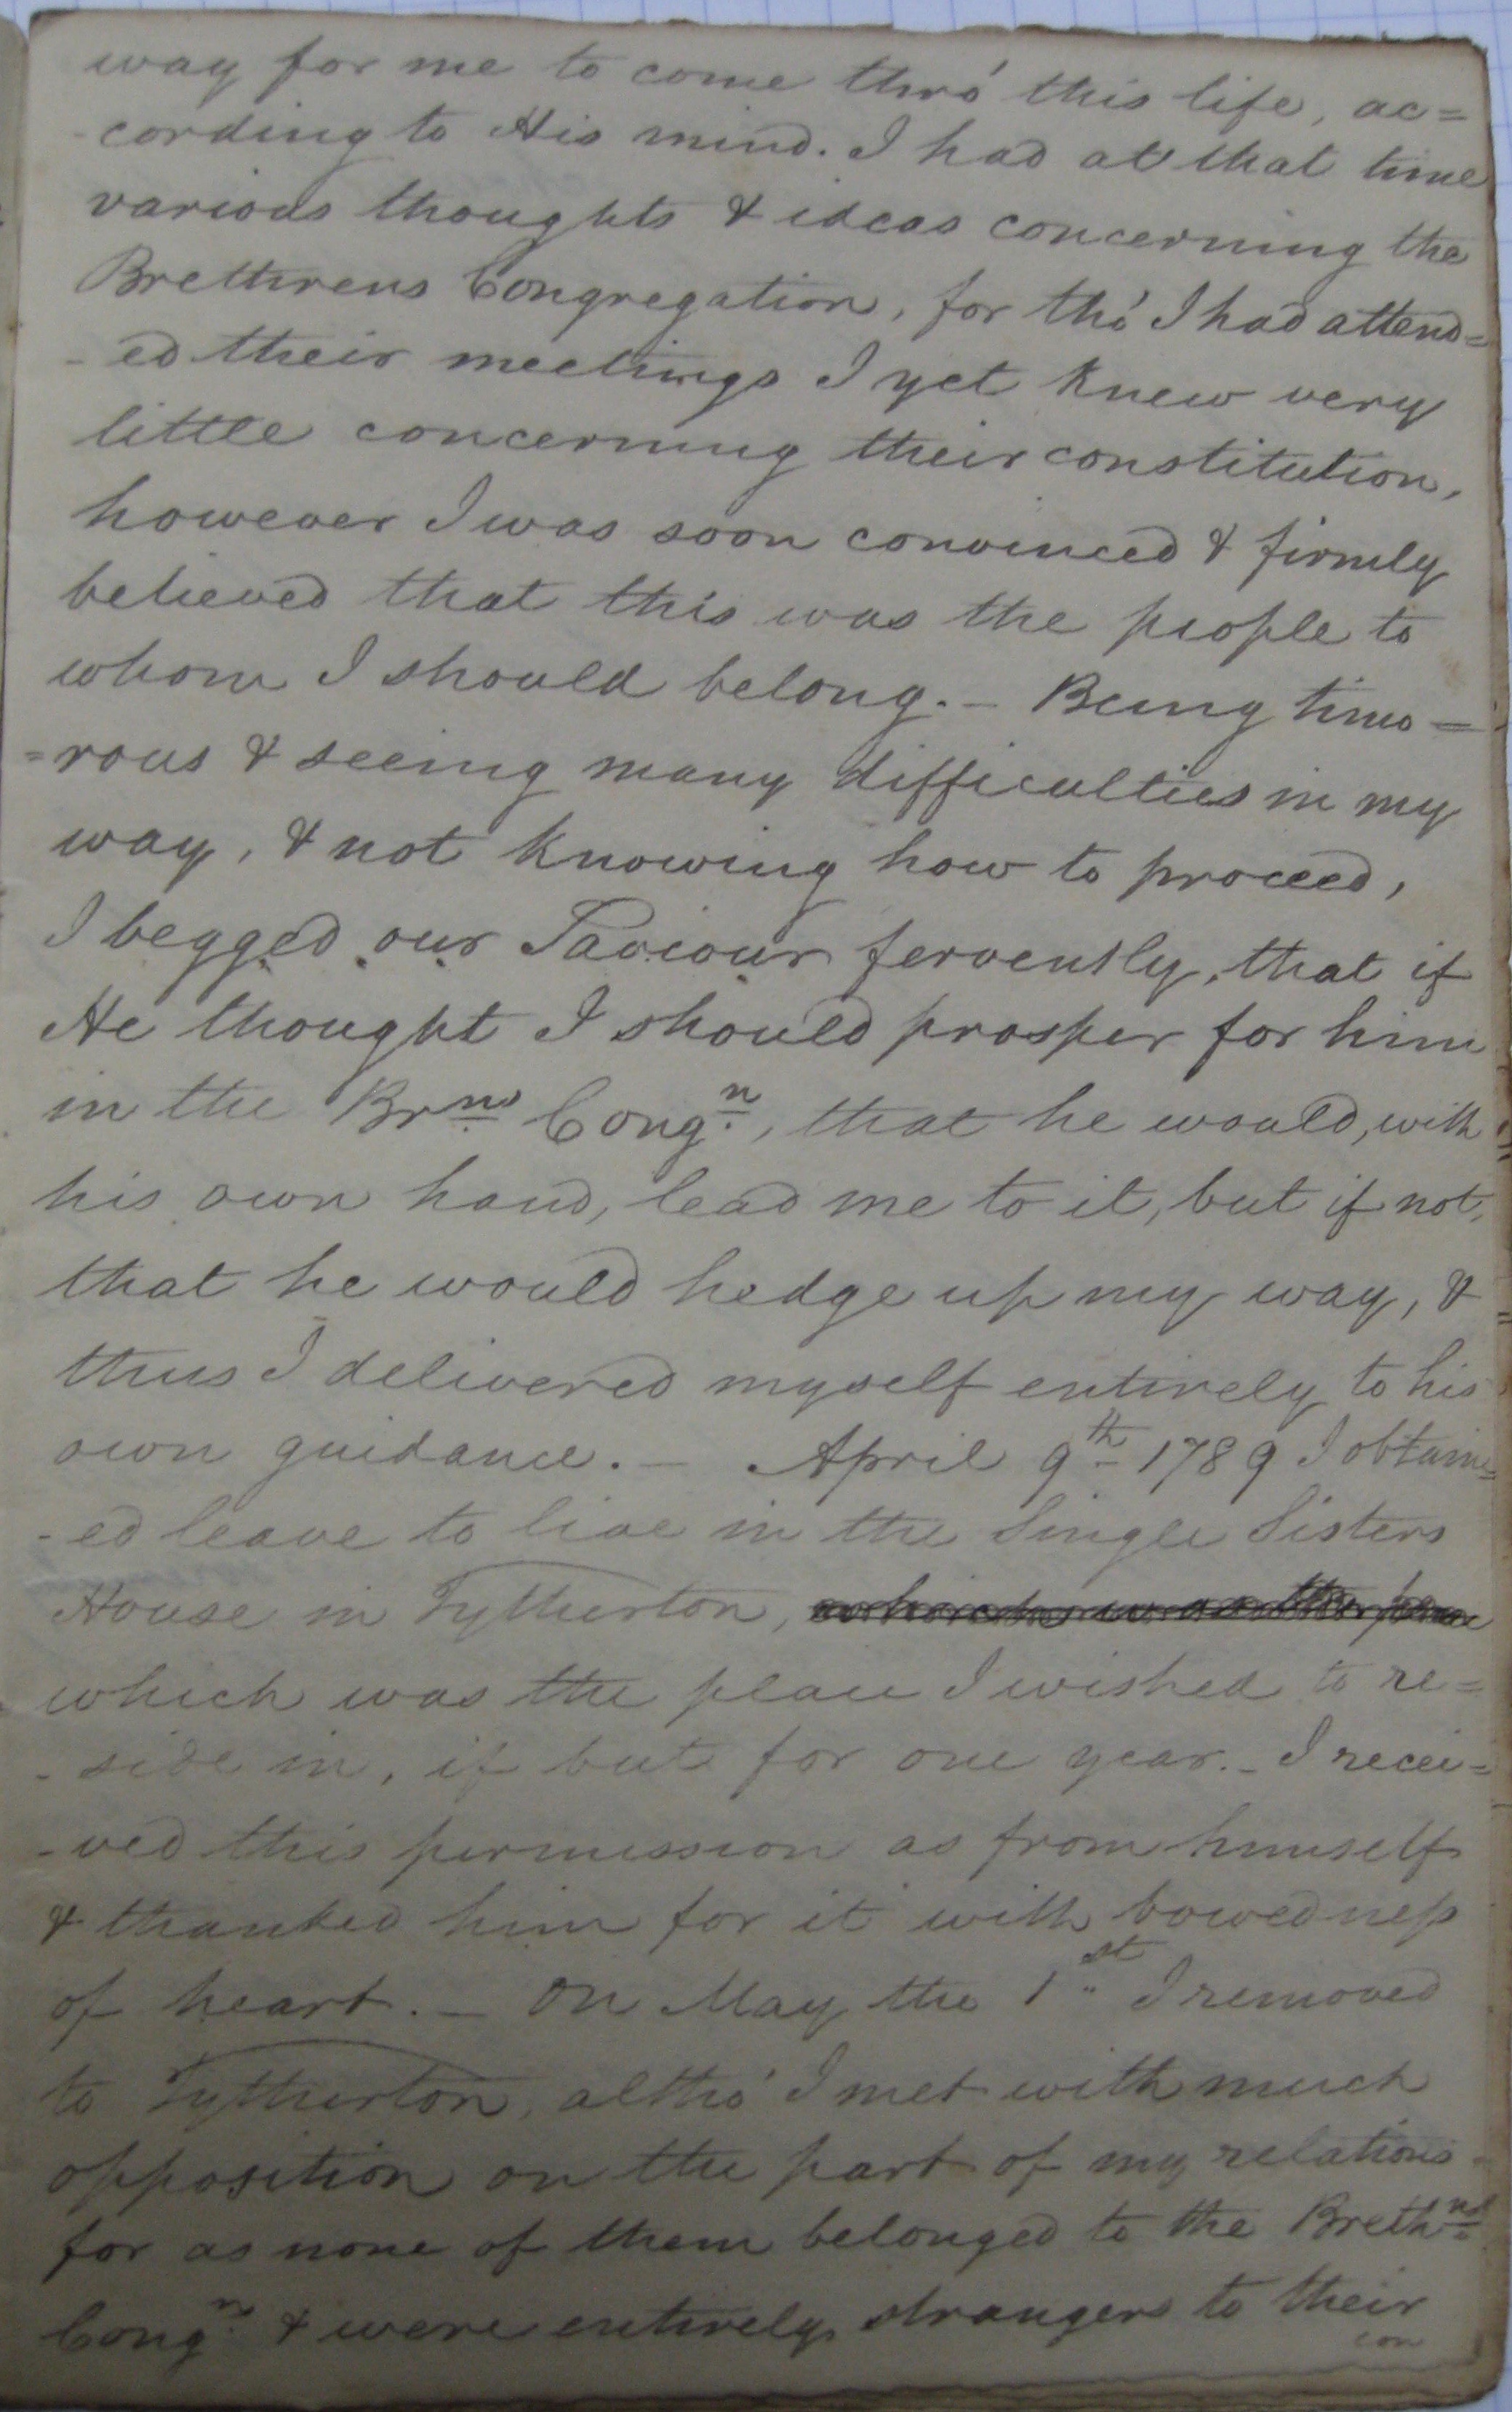 way for me to come thro' this life, ac=
-cording to His mind. I had at that time
various thoughts & ideas concerning the
Brethrens Congregation, for tho' I had attend=
-ed their meetings I yet knew very
little concerning their constitution,
however I was soon convinced & firmly
believed that this was the people to
whom I should belong. - Being timo=
=rous & seeing many difficulties in my
way, & not knowing how to proceed,
I begged our Saviour fervently, that if
He thought I should prosper for him
in the Brns Congn, that he would, with
his own hand, lead me to it, but if not,
that he would hedge up my way, &
thus I delivered myself entirely to his
own guidance. - April 9th 1789 I obtain=
-ed leave to live in the Single Sisters
House in Tytherton, which was the place
which was the place I wished to re=
-side in, if but for one year. - I recei=
-ved this permission as from himself
& thanked him for it with bowedness
of heart. - On May the 1st I removed
to Tytherton, altho' I met with much
opposition on the part of my relations
for as none of them belonged to the Brethns
Congn & were entirely strangers to their
con